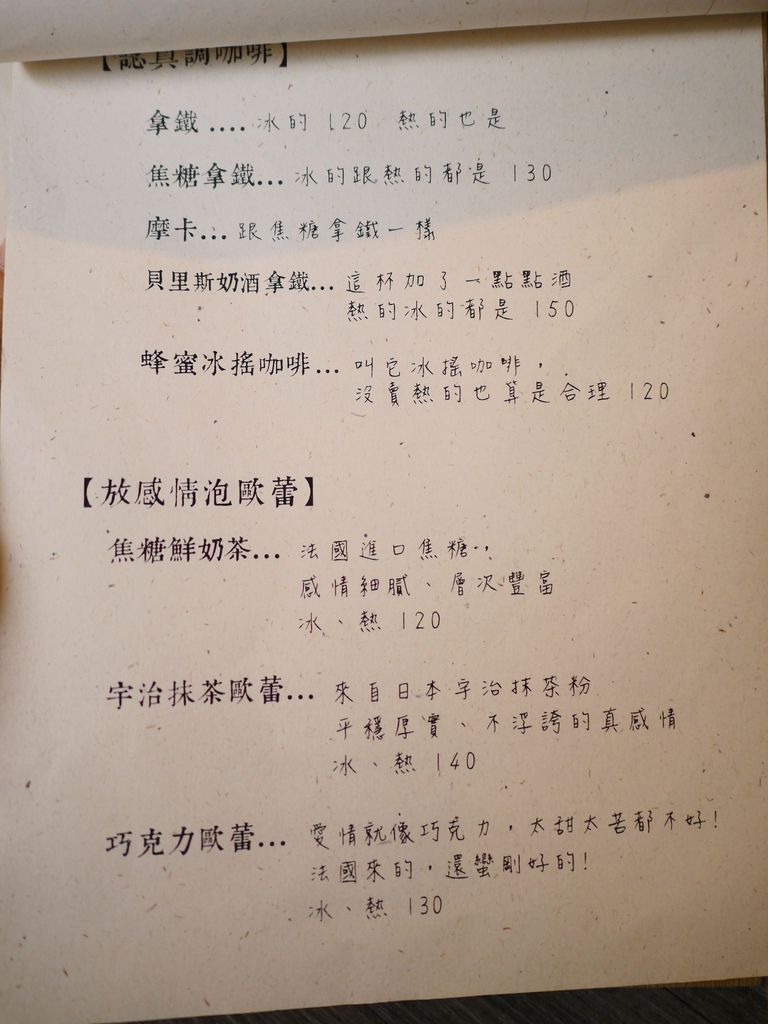 【認真調咖啡】
拿鐵....冰的 120 熱的也是
焦糖拿鐵...冰的跟熱的都是 130
摩卡...跟焦糖拿鐵一樣
貝里斯奶酒拿鐵...這杯加了一點點酒
熱的冰的都是 150
蜂蜜冰搖咖啡...叫它冰搖咖啡，
沒賣熱的也算是合理 120
【放感情泡歐蕾】
焦糖鮮奶茶...法國進口焦糖，
感情細膩、層次豐富
冰、熱 120
宇治抹茶歐蕾...來自日本宇治抹茶粉
平穩厚實、不浮誇的真感情
冰、熱 140
巧克力歐蕾...愛情就像巧克力，太甜太苦都不好!
法國來的，還蠻剛好的!
冰、熱 130